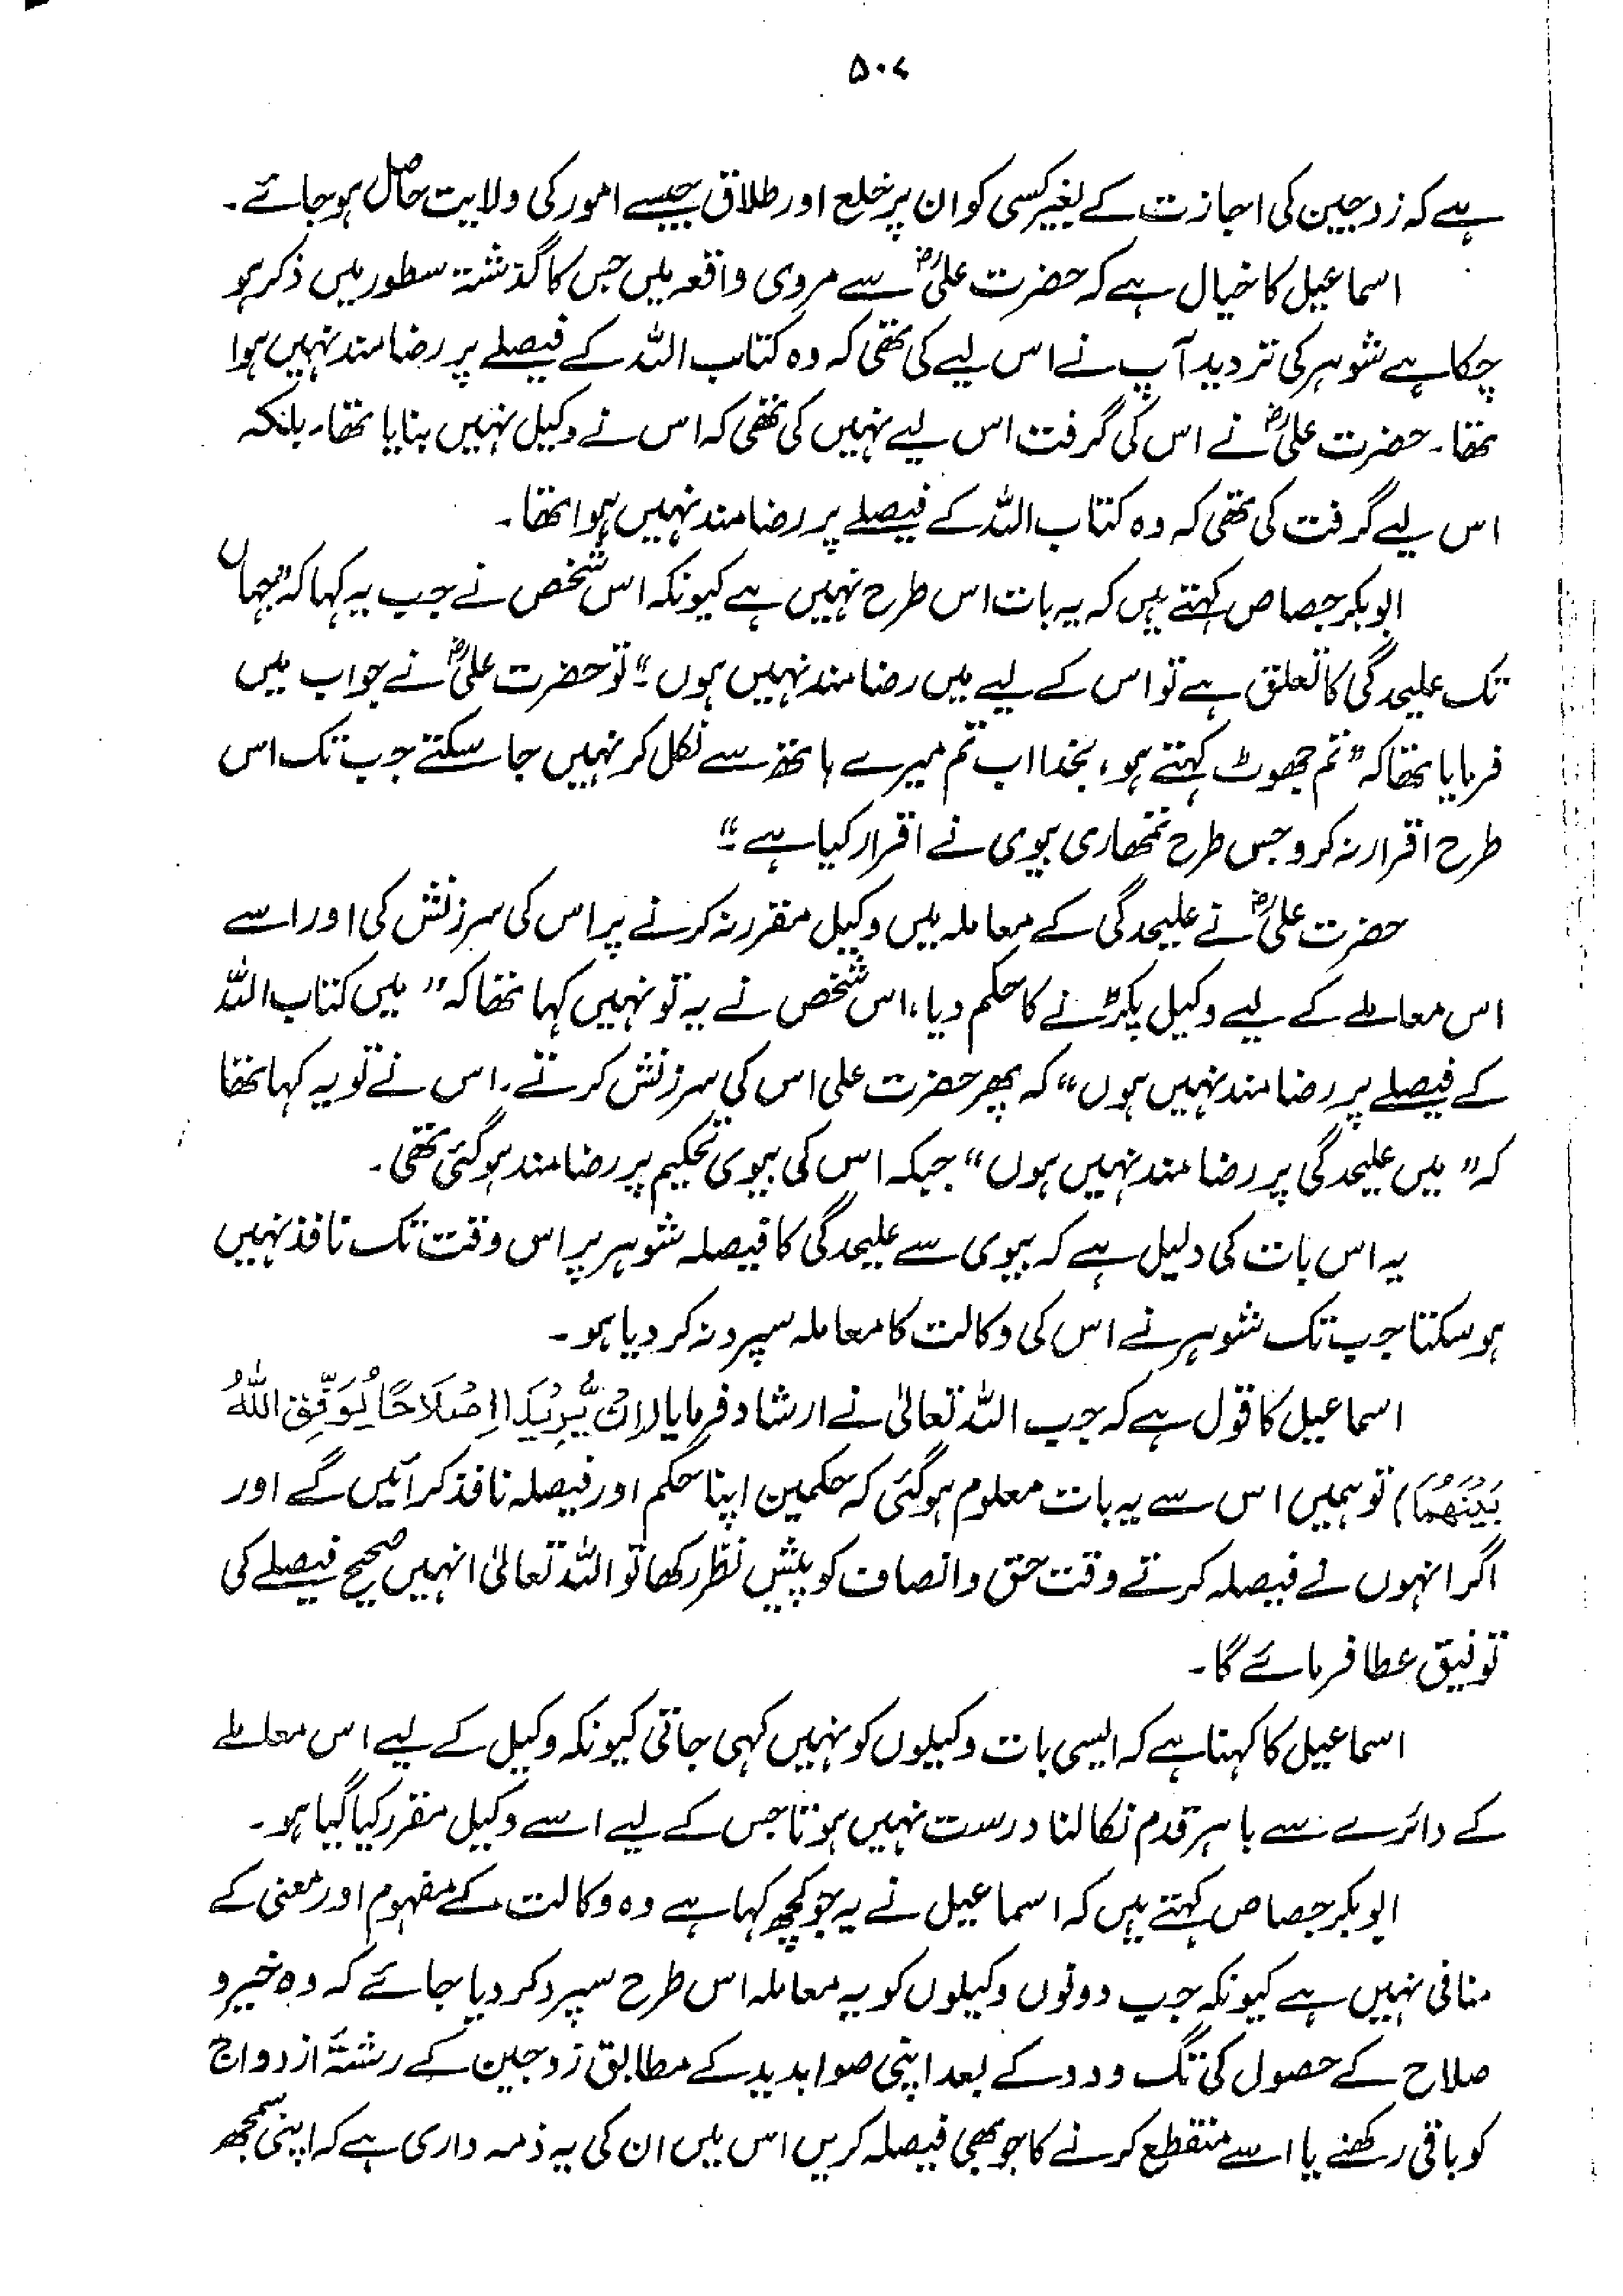 ۵۰۷
ہے کہ زوجین کی اجازت کے بغیر کسی کو ان پر خلع اور طلاق جیسے امور کی ولایت حاصل ہو جائے۔
اسماعیل کا خیال ہے کہ حضرت علیؓ سے مروی واقعہ میں جس کا گذشتہ سطور میں ذکر ہو
چکا ہے شوہر کی تردید آپ نے اس لیے کی تھی کہ وہ کتاب اللہ کے فیصلے پر رضامند نہیں ہوا
تھا۔ حضرت علیؓ نے اس کی گرفت اس لیے نہیں کی تھی کہ اس نے وکیل نہیں بنایا تھا۔ بلکہ
اس لیے گرفت کی تھی کہ وہ کتاب اللہ کے فیصلے پر رضامند نہیں ہوا تھا۔
ابوبکر جصاص کہتے ہیں کہ یہ بات اس طرح نہیں ہے کیونکہ اس شخص نے جب یہ کہا کہ "جہاں
تک علیحدگی کا تعلق ہے تو اس کے لیے میں رضامند نہیں ہوں۔" تو حضرت علیؓ نے جواب میں
فرمایا تھا کہ "تم جھوٹ کہتے ہو، بخدا اب تم میرے ہاتھ سے نکل کر نہیں جا سکتے جب تک اس
طرح اقرار نہ کرو جس طرح تمھاری بیوی نے اقرار کیا ہے۔"
حضرت علیؓ نے علیحدگی کے معاملہ میں وکیل مقرر نہ کرنے پر اس کی سرزنش کی اور اسے
اس معاملے کے لیے وکیل پکڑنے کا حکم دیا، اس شخص نے یہ تو نہیں کہا تھا کہ "میں کتاب اللہ
کے فیصلے پر رضامند نہیں ہوں" کہ پھر حضرت علی اس کی سرزنش کرتے۔ اس نے تو یہ کہا تھا
کہ "میں علیحدگی پر رضامند نہیں ہوں" جبکہ اس کی بیوی تحکیم پر رضامند ہو گئی تھی۔
یہ اس بات کی دلیل ہے کہ بیوی سے علیحدگی کا فیصلہ شوہر پر اس وقت تک نافذ نہیں
ہو سکتا جب تک شوہر نے اس کی وکالت کا معاملہ سپرد نہ کر دیا ہو۔
اسماعیل کا قول ہے کہ جب اللہ تعالیٰ نے ارشاد فرمایا (اِنْ يُّرِيْدَا اِصْلَاحًا يُّوَفِّقِ اللّٰهُ
بَيْنَهُمَا) تو ہمیں اس سے یہ بات معلوم ہو گئی کہ حکمین اپنا حکم اور فیصلہ نافذ کرائیں گے اور
اگر انہوں نے فیصلہ کرتے وقت حق و انصاف کو پیش نظر رکھا تو اللہ تعالیٰ انہیں صحیح فیصلے کی
توفیق عطا فرمائے گا۔
اسماعیل کا کہنا ہے کہ ایسی بات وکیلوں کو نہیں کہی جاتی کیونکہ وکیل کے لیے اس معاملے
کے دائرے سے باہر قدم نکالنا درست نہیں ہوتا جس کے لیے اسے وکیل مقرر کیا گیا ہو۔
ابوبکر جصاص کہتے ہیں کہ اسماعیل نے یہ جو کچھ کہا ہے وہ وکالت کے مفہوم اور معنی کے
منافی نہیں ہے کیونکہ جب دونوں وکیلوں کو یہ معاملہ اس طرح سپرد کر دیا جائے کہ وہ خیر و
صلاح کے حصول کی تگ و دو کے بعد اپنی صوابدید کے مطابق زوجین کے رشتۂ ازدواج
کو باقی رکھنے یا اسے منقطع کرنے کا جو بھی فیصلہ کریں اس میں ان کی یہ ذمہ داری ہے کہ اپنی سمجھ